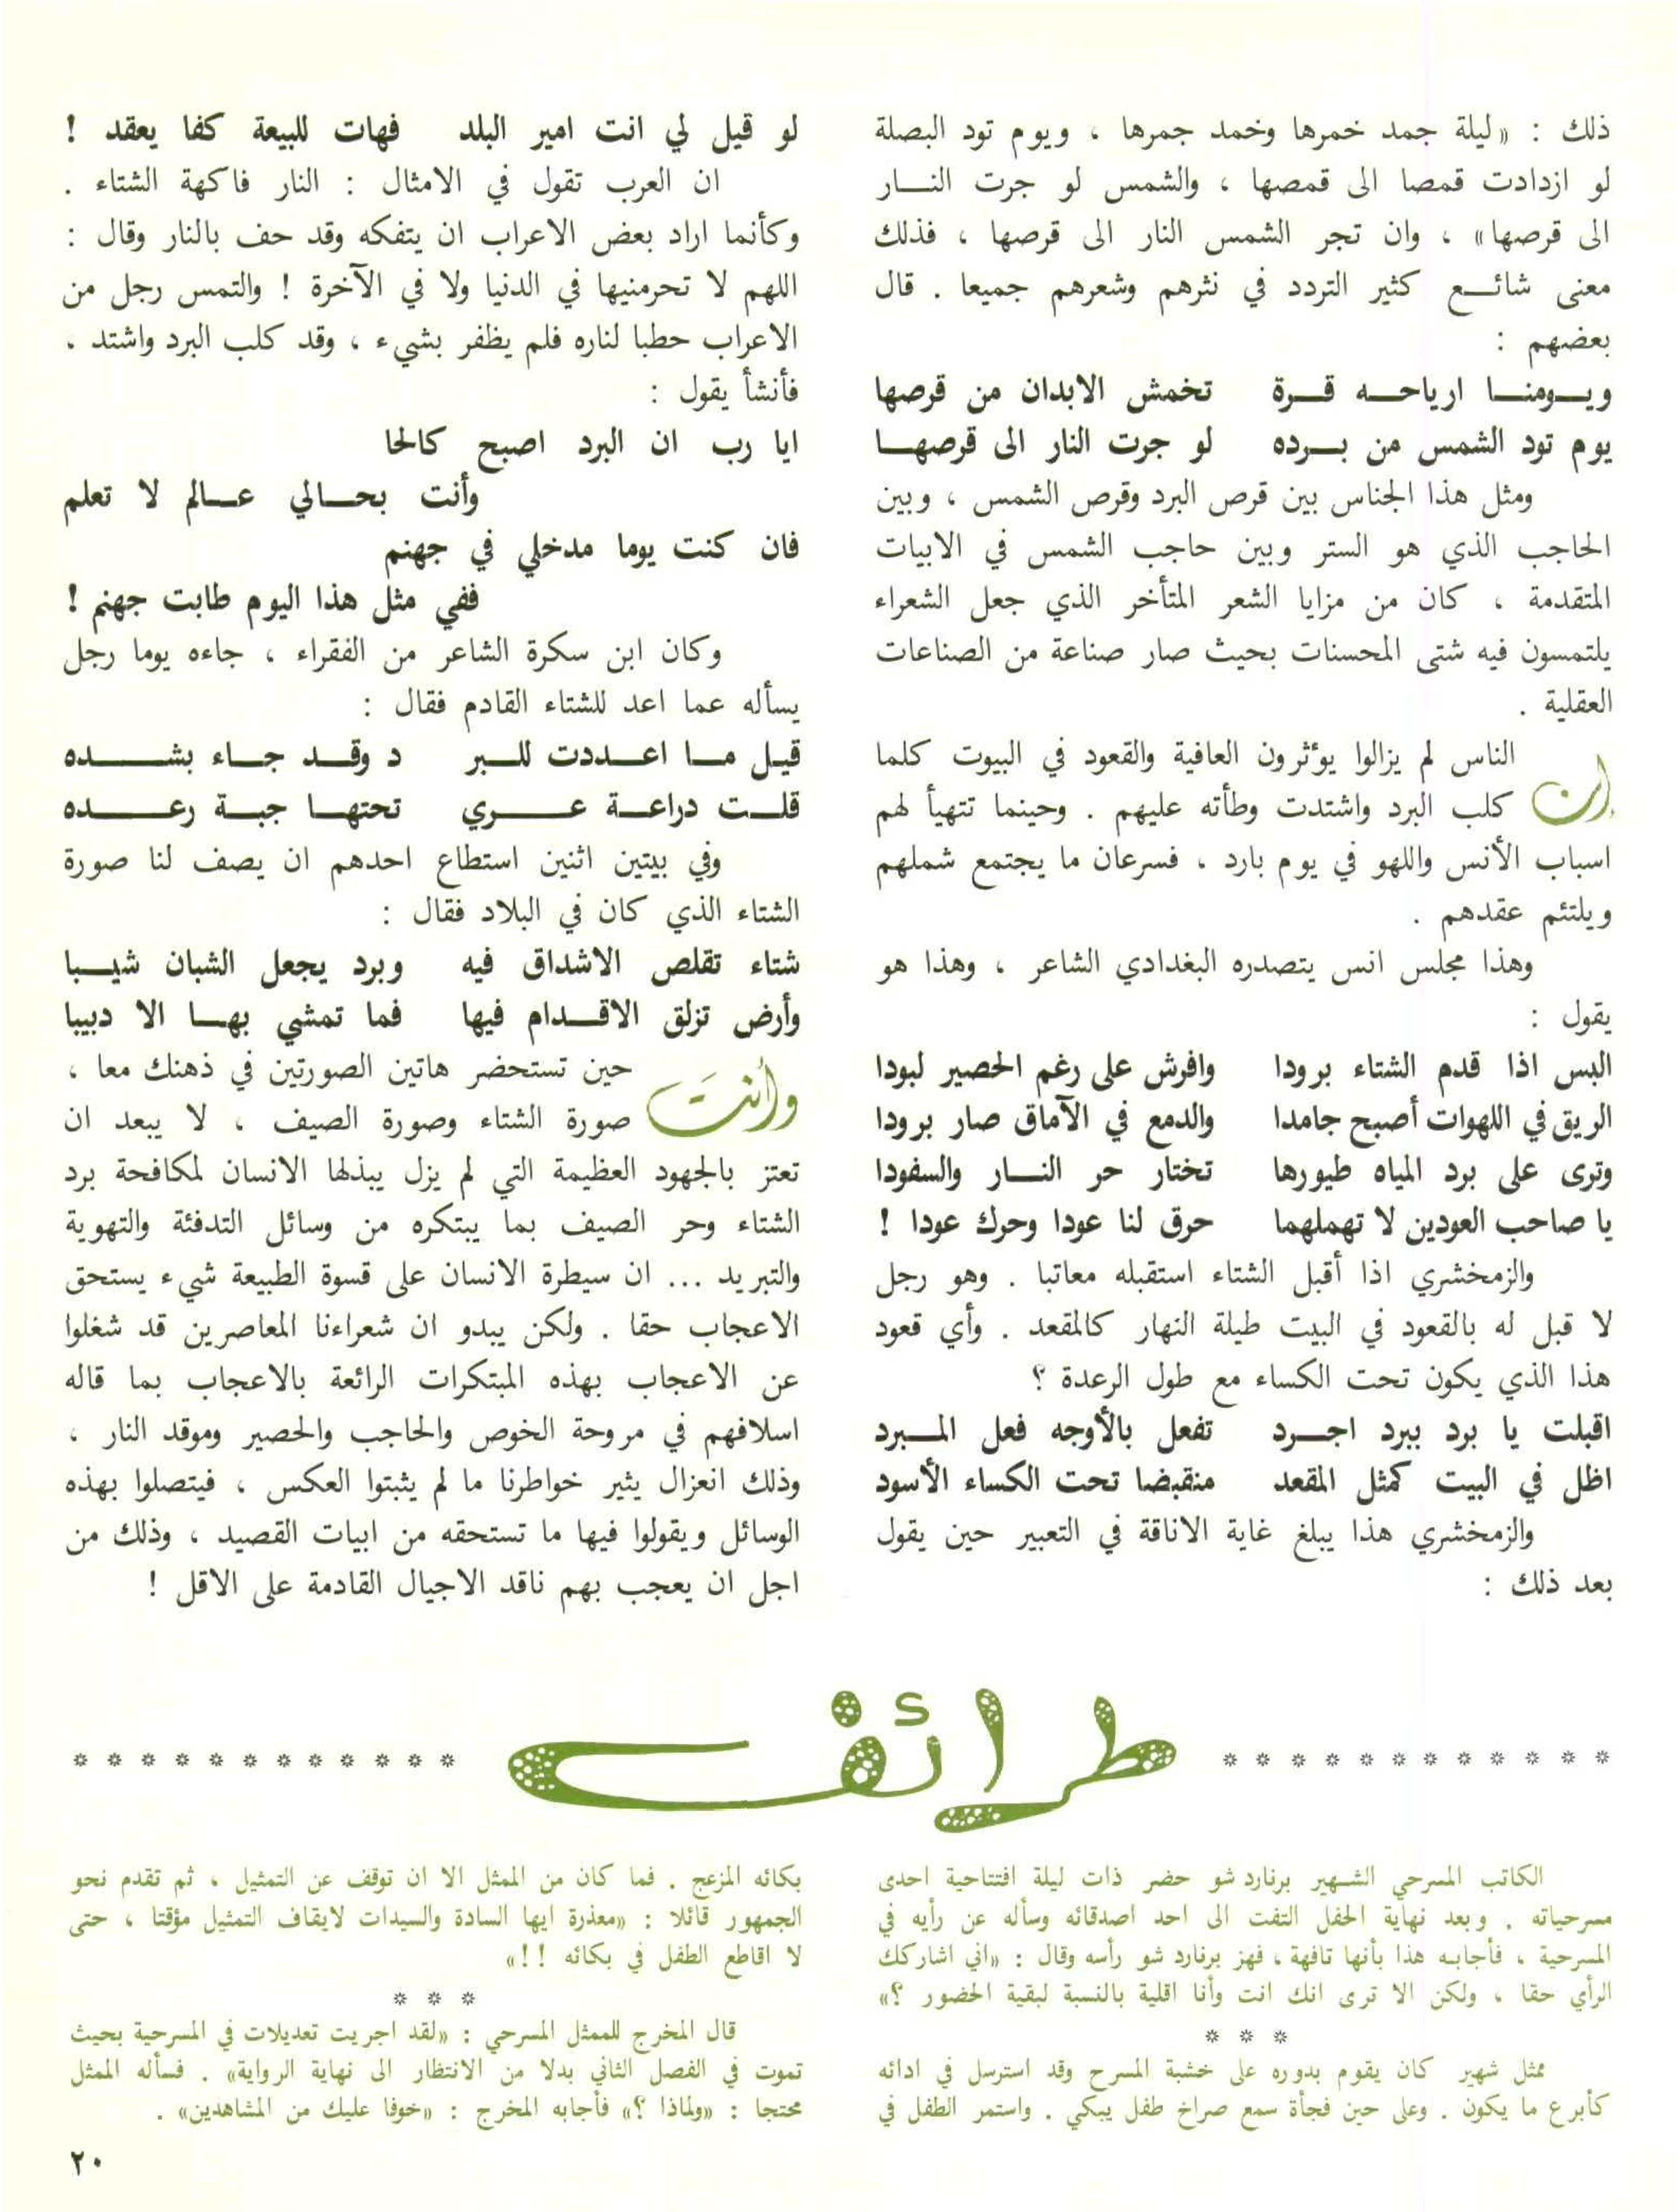 ذلك : «ليلة جمد خمرها وخمد جمرها ، ويوم تود البصلة
لو ازدادت قمصا الى قمصها ، والشمس لو جرت النـــار
الى قرصها» ، وان تجر الشمس النار الى قرصها ، فذلك
معنى شائـــع كثير التردد في نثرهم وشعرهم جميعا . قال
بعضهم :
ويـــومنـــا ارياحـــه قـــرة تخمش الابدان من قرصها
يوم تود الشمس من بـــرده لو جرت النار الى قرصهـــا
ومثل هذا الجناس بين قرص البرد وقرص الشمس ، وبين
الحاجب الذي هو الستر وبين حاجب الشمس في الابيات
المتقدمة ، كان من مزايا الشعر المتأخر الذي جعل الشعراء
يلتمسون فيه شتى المحسنات بحيث صار صناعة من الصناعات
العقلية .
ان الناس لم يزالوا يؤثرون العافية والقعود في البيوت كلما
كلب البرد واشتدت وطأته عليهم . وحينما تتهيأ لهم
اسباب الأنس واللهو في يوم بارد ، فسرعان ما يجتمع شملهم
ويلتئم عقدهم .
وهذا مجلس انس يتصدره البغدادي الشاعر ، وهذا هو
يقول :
البس اذا قدم الشتاء برودا وافرش على رغم الحصير لبودا
الريق في اللهوات أصبح جامدا والدمع في الآماق صار برودا
وترى على برد المياه طيورها تختار حر النـــار والسفودا
يا صاحب العودين لا تهملهما حرق لنا عودا وحرك عودا !
والزمخشري اذا أقبل الشتاء استقبله معاتبا . وهو رجل
لا قبل له بالقعود في البيت طيلة النهار كالمقعد . وأي قعود
هذا الذي يكون تحت الكساء مع طول الرعدة ؟
اقبلت يا برد ببرد اجـــرد تفعل بالأوجه فعل المـــبرد
اظل في البيت كمثل المقعد منقبضا تحت الكساء الأسود
والزمخشري هذا يبلغ غاية الاناقة في التعبير حين يقول
بعد ذلك :
لو قيل لي انت امير البلد فهات للبيعة كفا يعقد !
ان العرب تقول في الامثال : النار فاكهة الشتاء .
وكأنما اراد بعض الاعراب ان يتفكه وقد حف بالنار وقال :
اللهم لا تحرمنيها في الدنيا ولا في الآخرة ! والتمس رجل من
الاعراب حطبا لناره فلم يظفر بشيء ، وقد كلب البرد واشتد ،
فأنشأ يقول :
ايا رب ان البرد اصبح كالحا
وأنت بحـــالي عـــالم لا تعلم
فان كنت يوما مدخلي في جهنم
ففي مثل هذا اليوم طابت جهنم !
وكان ابن سكرة الشاعر من الفقراء ، جاءه يوما رجل
يسأله عما اعد للشتاء القادم فقال :
قيـل مـــا اعـــددت للـــبر د وقـــد جـــاء بشـــده
قلـــت دراعـــة عـــري تحتهـــا جبـــة رعـــده
وفي بيتين اثنين استطاع احدهم ان يصف لنا صورة
الشتاء الذي كان في البلاد فقال :
شتاء تقلص الاشداق فيه وبرد يجعل الشبان شيـــبا
وأرض تزلق الاقـــدام فيها فما تمشي بهـــا الا دبيبا
وأنت حين تستحضر هاتين الصورتين في ذهنك معا ،
صورة الشتاء وصورة الصيف ، لا يبعد ان
تعتز بالجهود العظيمة التي لم يزل يبذلها الانسان لمكافحة برد
الشتاء وحر الصيف بما يبتكره من وسائل التدفئة والتهوية
والتبريد ... ان سيطرة الانسان على قسوة الطبيعة شيء يستحق
الاعجاب حقا . ولكن يبدو ان شعراءنا المعاصرين قد شغلوا
عن الاعجاب بهذه المبتكرات الرائعة بالاعجاب بما قاله
اسلافهم في مروحة الخوص والحاجب والحصير وموقد النار ،
وذلك انعزال يثير خواطرنا ما لم يثبتوا العكس ، فيتصلوا بهذه
الوسائل ويقولوا فيها ما تستحقه من ابيات القصيد ، وذلك من
اجل ان يعجب بهم ناقد الاجيال القادمة على الاقل !
طرائف
الكاتب المسرحي الشـهير برنارد شو حضر ذات ليلة افتتاحية احدى
مسرحياته . وبعد نهاية الحفل التفت الى احد اصدقائه وسأله عن رأيه في
المسرحية ، فأجابـه هذا بأنها تافهة ، فهز برنارد شو رأسه وقال : «اني اشاركك
الرأي حقا ، ولكن الا ترى انك انت وأنا اقلية بالنسبة لبقية الحضور ؟»
* * *
ممثل شهير كان يقوم بدوره على خشبة المسرح وقد استرسل في ادائه
كأبرع ما يكون . وعلى حين فجأة سمع صراخ طفل يبكي . واستمر الطفل في
بكائه المزعج . فما كان من الممثل الا ان توقف عن التمثيل ، ثم تقدم نحو
الجمهور قائلا : «معذرة ايها السادة والسيدات لايقاف التمثيل مؤقتا ، حتى
لا اقاطع الطفل في بكائه !!»
* * *
قال المخرج للممثل المسرحي : «لقد اجريت تعديلات في المسرحية بحيث
تموت في الفصل الثاني بدلا من الانتظار الى نهاية الرواية» . فسأله الممثل
محتجا : «ولماذا ؟» فأجابه المخرج : «خوفا عليك من المشاهدين» .
٢٠